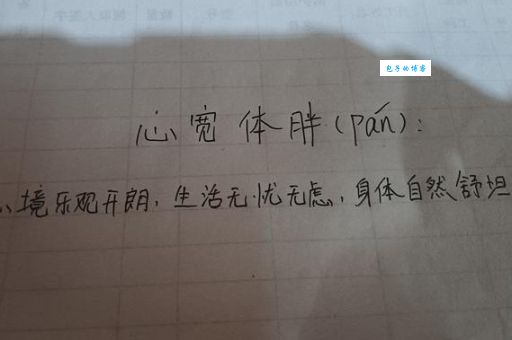 包子的博客
心宽体胖(pán):
心境乐观开朗,生活无忧无虑,身体自然舒坦